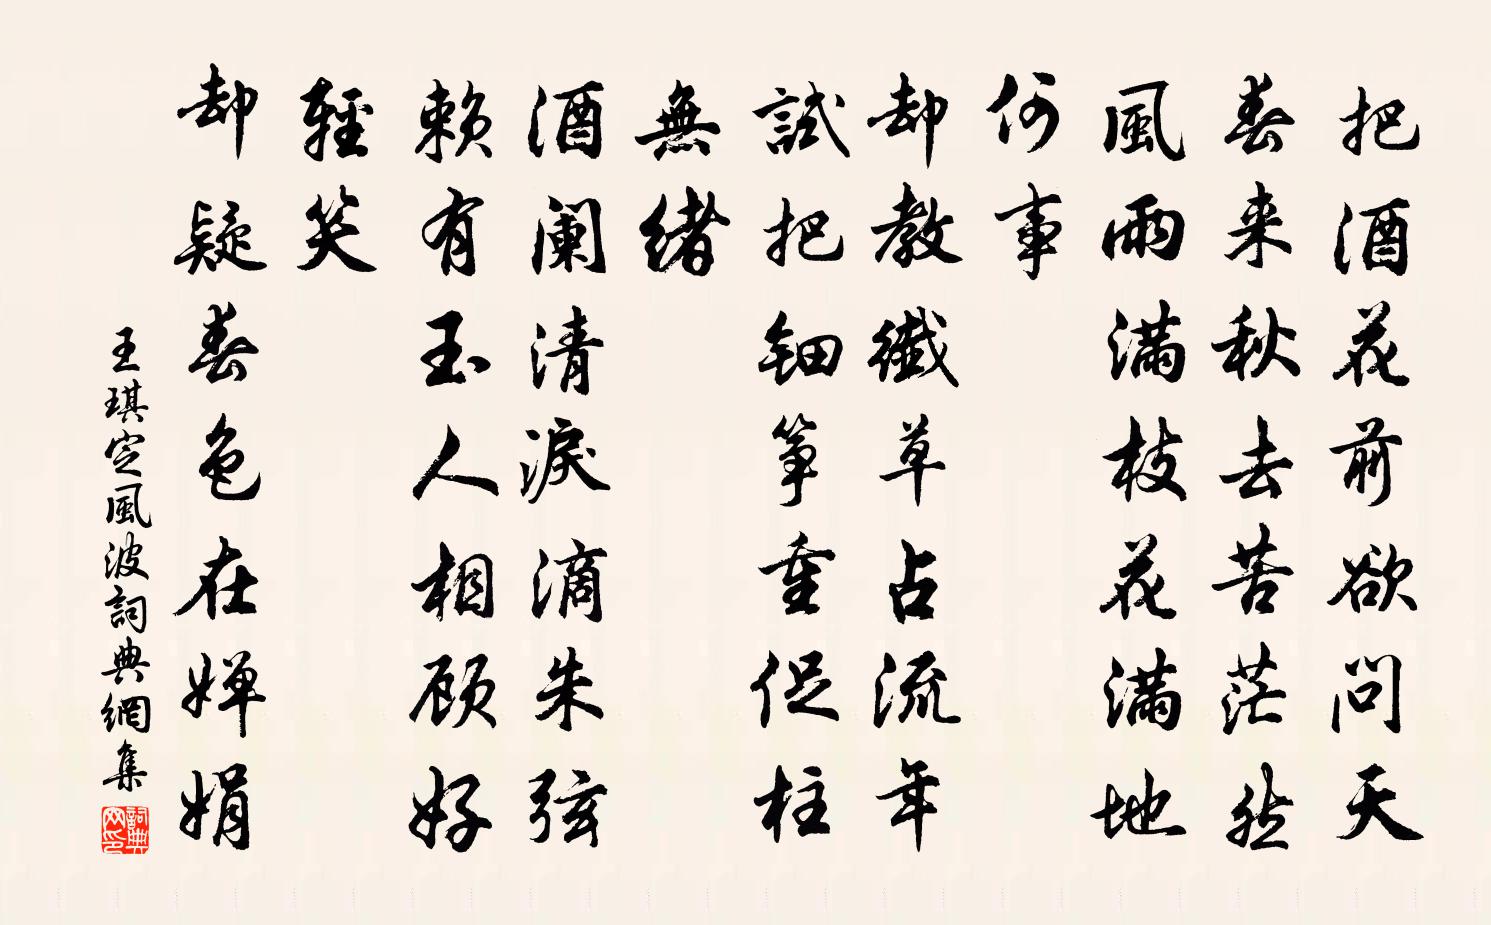 把酒花前欲問天
春来秋去苦茫然
風雨滿枝花滿地
何事
却教纖草占流年
試把鈿筝重促柱
無緒
酒闌清淚滴朱弦
賴有玉人相顧好
輕笑
却疑春色在嬋娟
王琪定風波詞典網集
詞典
网印